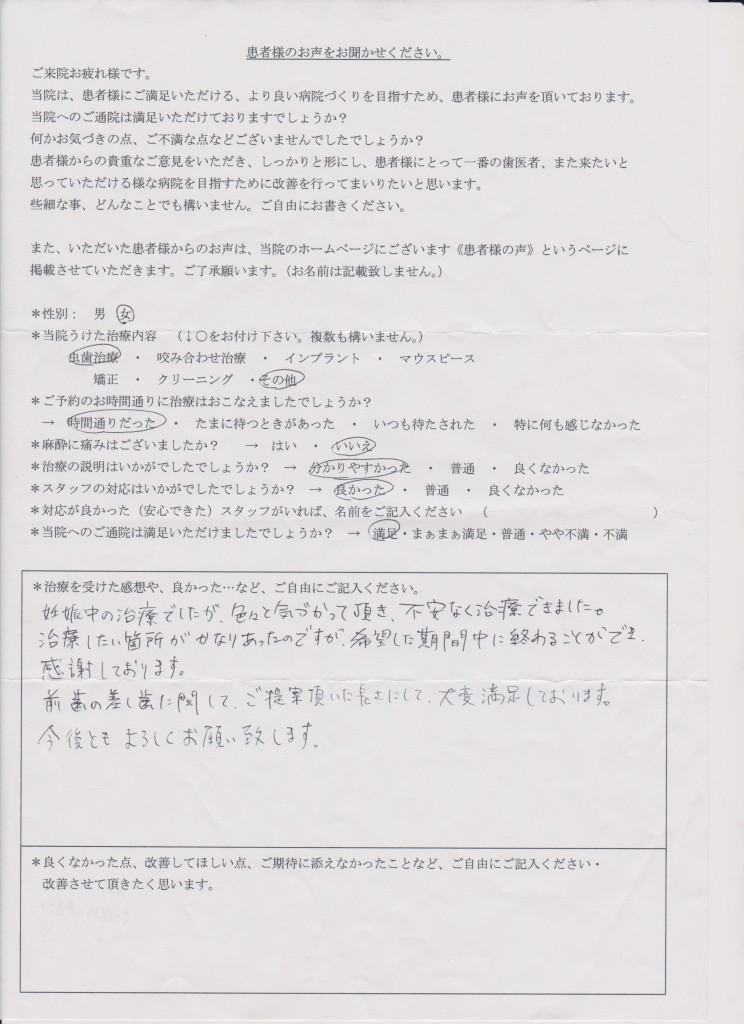 患者様のお声をお聞かせください。
ご来院お疲れ様です。
当院は、患者様にご満足いただける、より良い病院づくりを目指すため、患者様にお声を頂いております。
当院へのご通院は満足いただけておりますでしょうか？
何かお気づきの点、ご不満な点などございませんでしたでしょうか？
患者様からの貴重なご意見をいただき、しっかりと形にし、患者様にとって一番の歯医者、また来たいと
思っていただける様な病院を目指すために改善を行ってまいりたいと思います。
些細な事、どんなことでも構いません。ご自由にお書きください。
また、いただいた患者様からのお声は、当院のホームページにございます《患者様の声》というページに
掲載させていただきます。ご了承願います。（お名前は記載致しません。）
＊性別：　男　女
＊当院うけた治療内容　（↓○をお付け下さい。複数も構いません。）
虫歯治療　・　咬み合わせ治療　・　インプラント　・　マウスピース
矯正　・　クリーニング　・その他
＊ご予約のお時間通りに治療はおこなえましたでしょうか？
→　時間通りだった　・　たまに待つときがあった　・　いつも待たされた　・　特に何も感じなかった
＊麻酔に痛みはございましたか？　→　はい　・　いいえ
＊治療の説明はいかがでしたでしょうか？　→　分かりやすかった　・　普通　・　良くなかった
＊スタッフの対応はいかがでしたでしょうか？　→　良かった　・　普通　・　良くなかった
＊対応が良かった（安心できた）スタッフがいれば、名前をご記入ください　（　　　　　　　　　　）
＊当院へのご通院は満足いただけましたでしょうか？　→　満足・まぁまぁ満足・普通・やや不満・不満
＊治療を受けた感想や、良かった…など、ご自由にご記入ください。
妊娠中の治療でしたが、色々と気づかって頂き、不安なく治療できました。
治療したい箇所がかなりあったのですが、希望した期間中に終わることができ、
感謝しております。
前歯の差し歯に関して、ご提案頂いた長さにして、大変満足しております。
今後ともよろしくお願い致します。
＊良くなかった点、改善してほしい点、ご期待に添えなかったことなど、ご自由にご記入ください・
改善させて頂きたく思います。